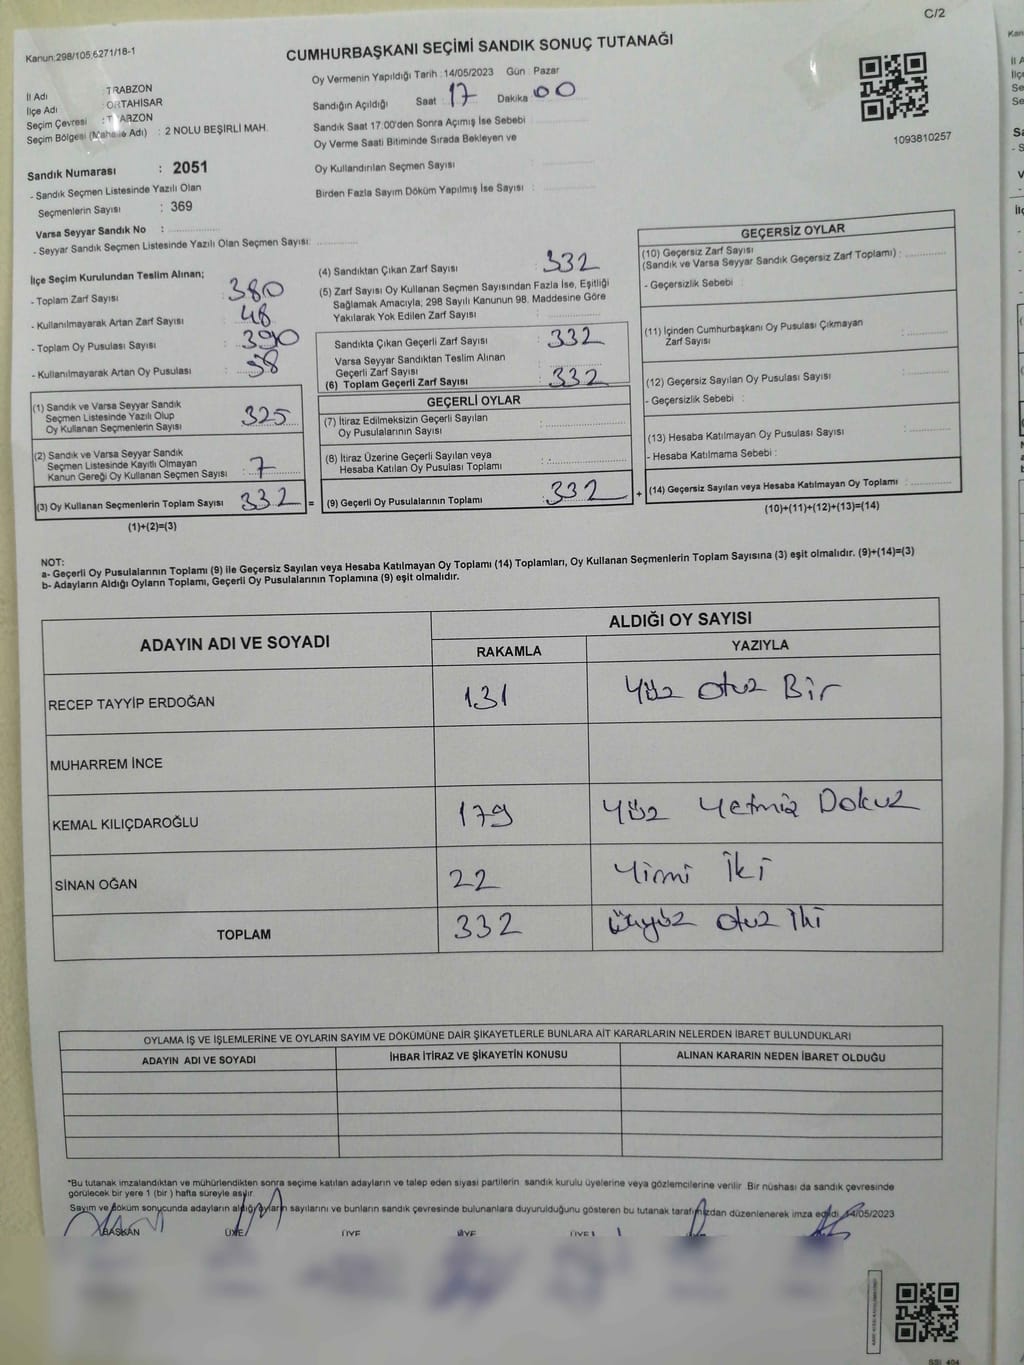 C/2
Kanun:298/105,6271/18-1
CUMHURBAŞKANI SEÇİMİ SANDIK SONUÇ TUTANAĞI
Oy Vermenin Yapıldığı Tarih : 14/05/2023 Gün : Pazar
İl Adı : TRABZON
İlçe Adı : ORTAHİSAR
Seçim Çevresi : TRABZON
Seçim Bölgesi (Mahalle Adı) : 2 NOLU BEŞİRLİ MAH.
Sandığın Açıldığı Saat 17 Dakika 00
Sandık Saat 17:00'den Sonra Açımış İse Sebebi :
Oy Verme Saati Bitiminde Sırada Bekleyen ve
Oy Kullandırılan Seçmen Sayısı
Birden Fazla Sayım Döküm Yapılmış İse Sayısı :
1093810257
Sandık Numarası : 2051
- Sandık Seçmen Listesinde Yazılı Olan
Seçmenlerin Sayısı : 369
Varsa Seyyar Sandık No :
- Seyyar Sandık Seçmen Listesinde Yazılı Olan Seçmen Sayısı:
İlçe Seçim Kurulundan Teslim Alınan;
- Toplam Zarf Sayısı : 380
- Kullanılmayarak Artan Zarf Sayısı : 48
- Toplam Oy Pusulası Sayısı : 390
- Kullanılmayarak Artan Oy Pusulası : 58
(1) Sandık ve Varsa Seyyar Sandık
Seçmen Listesinde Yazılı Olup
Oy Kullanan Seçmenlerin Sayısı : 325
(2) Sandık ve Varsa Seyyar Sandık
Seçmen Listesinde Kayıtlı Olmayan
Kanun Gereği Oy Kullanan Seçmen Sayısı : 7
(3) Oy Kullanan Seçmenlerin Toplam Sayısı 332 =
(1)+(2)=(3)
(4) Sandıktan Çıkan Zarf Sayısı : 332
(5) Zarf Sayısı Oy Kullanan Seçmen Sayısından Fazla İse, Eşitliği
Sağlamak Amacıyla; 298 Sayılı Kanunun 98. Maddesine Göre
Yakılarak Yok Edilen Zarf Sayısı :
Sandıkta Çıkan Geçerli Zarf Sayısı : 332
Varsa Seyyar Sandıktan Teslim Alınan
Geçerli Zarf Sayısı :
(6) Toplam Geçerli Zarf Sayısı : 332
GEÇERLİ OYLAR
(7) İtiraz Edilmeksizin Geçerli Sayılan
Oy Pusulalarının Sayısı :
(8) İtiraz Üzerine Geçerli Sayılan veya
Hesaba Katılan Oy Pusulası Toplamı :
(9) Geçerli Oy Pusulalarının Toplamı : 332 +
GEÇERSİZ OYLAR
(10) Geçersiz Zarf Sayısı
(Sandık ve Varsa Seyyar Sandık Geçersiz Zarf Toplamı) :
- Geçersizlik Sebebi :
(11) İçinden Cumhurbaşkanı Oy Pusulası Çıkmayan
Zarf Sayısı :
(12) Geçersiz Sayılan Oy Pusulası Sayısı :
- Geçersizlik Sebebi :
(13) Hesaba Katılmayan Oy Pusulası Sayısı :
- Hesaba Katılmama Sebebi :
(14) Geçersiz Sayılan veya Hesaba Katılmayan Oy Toplamı :
(10)+(11)+(12)+(13)=(14)
NOT:
a- Geçerli Oy Pusulalarının Toplamı (9) ile Geçersiz Sayılan veya Hesaba Katılmayan Oy Toplamı (14) Toplamları, Oy Kullanan Seçmenlerin Toplam Sayısına (3) eşit olmalıdır. (9)+(14)=(3)
b- Adayların Aldığı Oyların Toplamı, Geçerli Oy Pusulalarının Toplamına (9) eşit olmalıdır.
ADAYIN ADI VE SOYADI ALDIĞI OY SAYISI
RAKAMLA YAZIYLA
RECEP TAYYİP ERDOĞAN 131 Yüz Otuz Bir
MUHARREM İNCE
KEMAL KILIÇDAROĞLU 179 Yüz Yetmiş Dokuz
SİNAN OĞAN 22 Yirmi İki
TOPLAM 332 Üçyüz Otuz İki
OYLAMA İŞ VE İŞLEMLERİNE VE OYLARIN SAYIM VE DÖKÜMÜNE DAİR ŞİKAYETLERLE BUNLARA AİT KARARLARIN NELERDEN İBARET BULUNDUKLARI
ADAYIN ADI VE SOYADI İHBAR İTİRAZ VE ŞİKAYETİN KONUSU ALINAN KARARIN NEDEN İBARET OLDUĞU
*Bu tutanak imzalandıktan ve mühürlendikten sonra seçime katılan adayların ve talep eden siyasi partilerin sandık kurulu üyelerine veya gözlemcilerine verilir. Bir nüshası da sandık çevresinde
görülecek bir yere 1 (bir) hafta süreyle asılır.
Sayım ve döküm sonucunda adayların aldığı oyların sayılarını ve bunların sandık çevresinde bulunanlara duyurulduğunu gösteren bu tutanak tarafımızdan düzenlenerek imza edildi. 14/05/2023
BAŞKAN ÜYE ÜYE ÜYE ÜYE